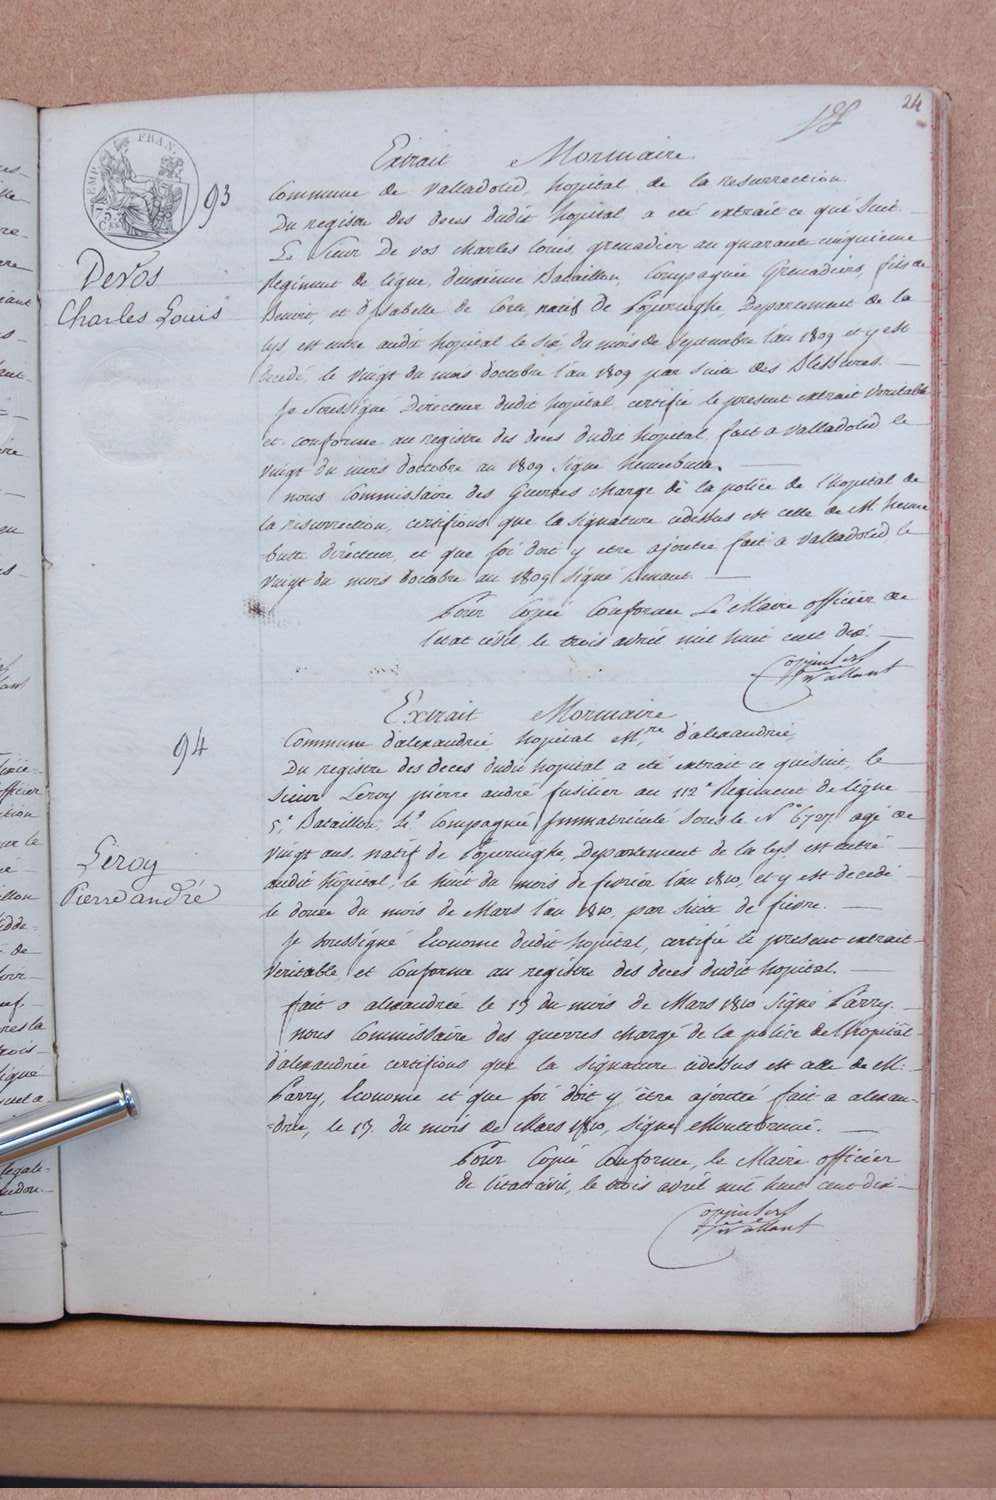 24
EMP. FRAN.
93
Extrait Mormaire
Commune de Valladolid, hopital de la resurrection
Du registre des deces dudit hopital a eté extrait ce qui Suit.
Le Sieur De vos charles louis, grenadier au quarant cinquieme
Devos
Charles Louis
Regiment de ligne, deuxieme Bataillon, Compagnie Grenadiers, fils de
Benoit, et d'Isabelle de Corte, natif de Poperinghe, Departement de la
lys, est entre audit hopital le six du mois de Septembre l'an 1809 et y est
decedé, le vingt du mois d'octobre l'an 1809 par suite des Blessures.
Je Soussigné Directeur dudit hopital certifie le present extrait veritable
et conforme au registre des deces dudit hopital, fait a Valladolid le
vingt du mois d'octobre an 1809 signé hennebutte.
nous Commissaire des Guerres chargé de la police de l'hopital de
la resurrection, certifions que la signature cidessus est celle de Mr henne
-butte directeur, et que foi doit y etre ajoutée fait a Valladolid, le
vingt du mois d'octobre an 1809 signé
Pour Copie Conforme Le Maire officier de
l'etat civil, le trois avril mil huit cent dix.
94
Extrait Mormaire
Commune d'alexandrie hopital Mre d'alexandrie,
Du registre des deces dudit hopital a eté extrait ce quisuit, le
Sieur Leroy pierre andré fusilier au 112e Regiment de ligne
5e Bataillon, 4e Compagnie Immatriculé sous le No 6727 agé de
vingt ans natif de Poperinghe, Departement de la lys est entré
Leroy
Pierre andré
audit hôpital, le huit du mois de fevrier l'an 1810, et y est decedé
le douze du mois de Mars l'an 1810, par suite de fievre.
Je soussigné Econome dudit hopital, certifie le present extrait
veritable et conforme au registre des deces dudit hopital.
fait a alexandrie le 13 du mois de Mars 1810 Signé Parry.
nous Commissaire des guerres chargé de la police de l'hopital
d'alexandrie certifions que la signature cidessus est celle de M:
Parry, Econome et que foi doit y être ajouté fait a alexan-
-drie, le 13 du mois de Mars 1810, signé
Pour Copie Conforme, le Maire officier
de l'état civil, le trois avril mil huit cent dix